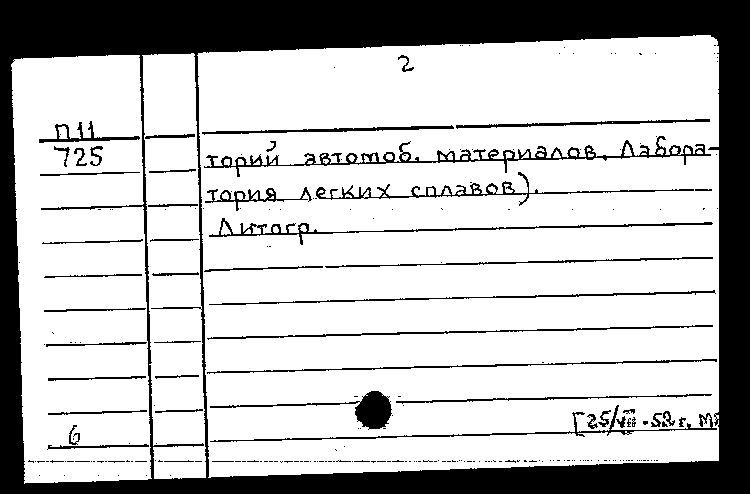 2
П11
725
торий автомоб. материалов. Лабора-
тория легких сплавов).
Литогр.
6
[25/VII-52 г.